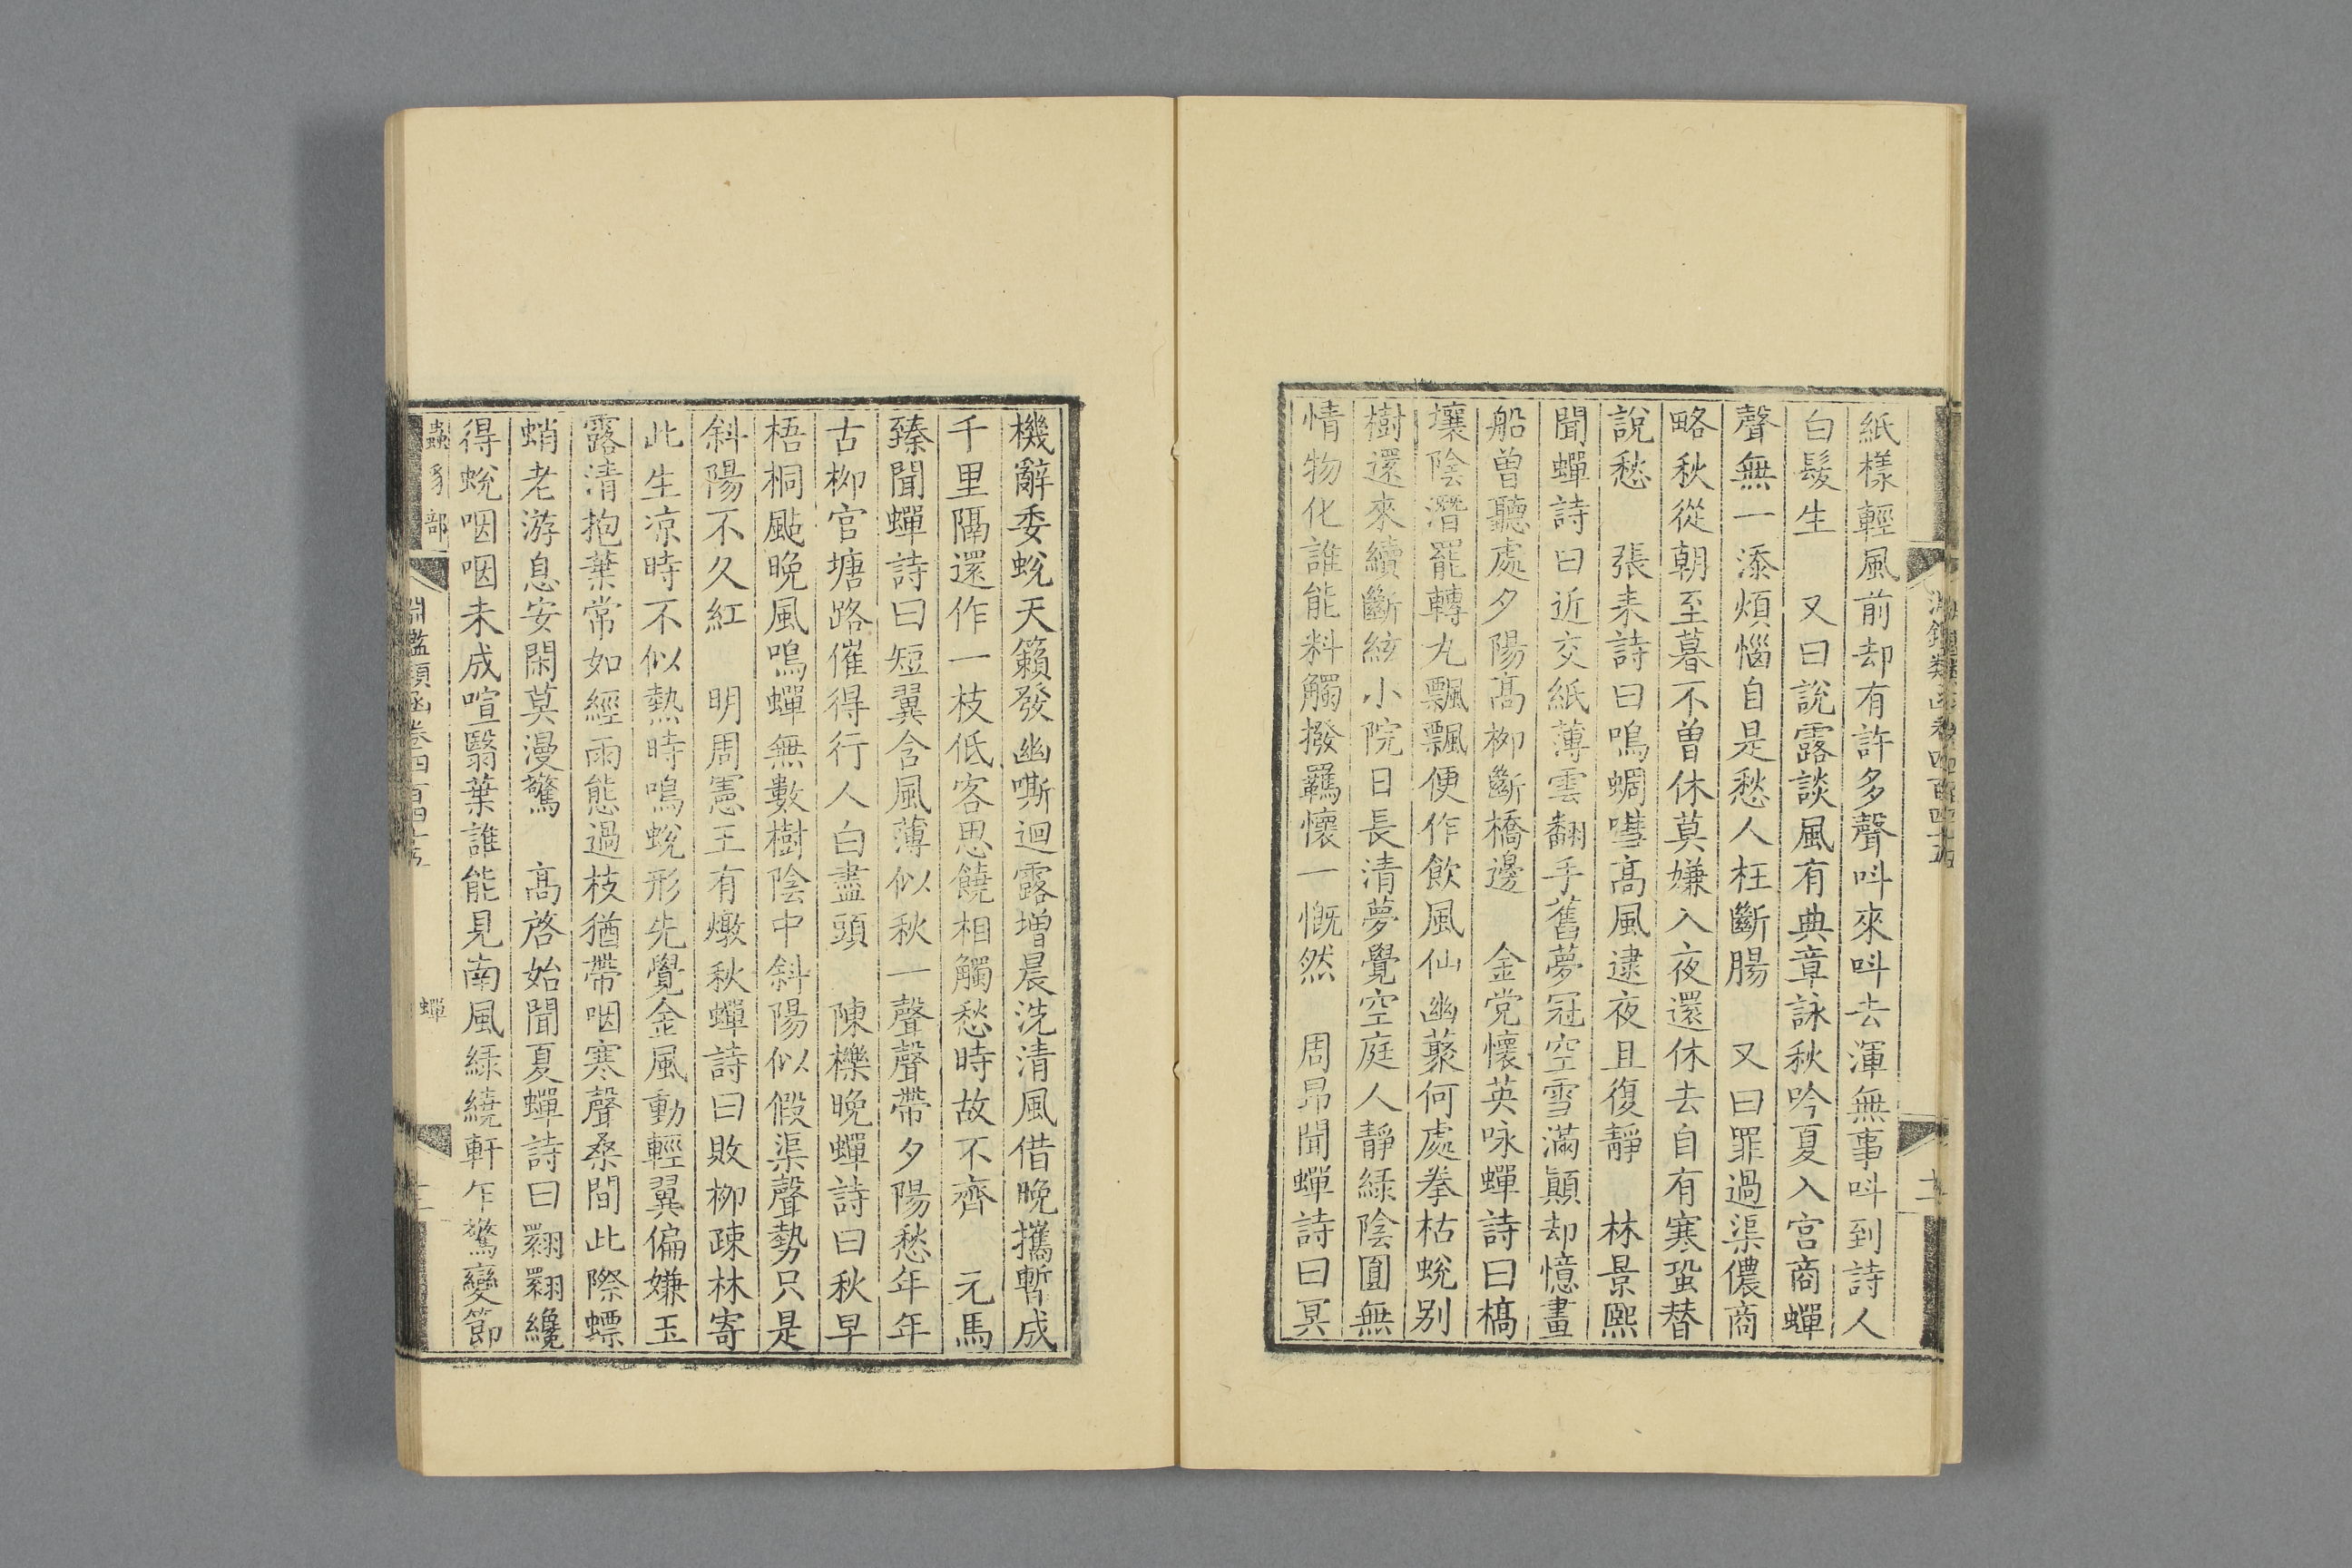 紙樣輕風前却有許多聲呌來呌去渾無事呌到詩人
白髮生　又曰說露談風有典章詠秋吟夏入宮商蟬
聲無一添煩惱自是愁人枉斷腸　又曰罪過渠儂商
略秋從朝至暮不曽休莫嫌入夜還休去自有寒螀替
說愁　張耒詩曰鳴蜩嘒髙風逮夜且復靜　林景熙
聞蟬詩曰近交紙薄雲翻手舊夢冠空雪滿顛却憶畫
船曽聽處夕陽髙栁斷橋邊　金党懷英咏蟬詩曰槁
壤陰潛罷轉丸飄飄便作飲風仙幽藂何處拳枯蛻别
樹還來續斷絃小院日長清夢覺空庭人靜緑陰圓無
情物化誰能料觸撥羈懷一慨然　周昻聞蟬詩曰冥
機辭委蛻天籟發幽嘶迴露增晨洗清風借晚攜暫成
千里隔還作一枝低客思饒相觸愁時故不齊　元馬
臻聞蟬詩曰短翼含風薄似秋一聲聲帶夕陽愁年年
古栁官塘路催得行人白盡頭　陳櫟晚蟬詩曰秋早
梧桐颭晚風鳴蟬無數樹陰中斜陽似假渠聲勢只是
斜陽不久紅　明周憲王有燉秋蟬詩曰敗栁踈林寄
此生凉時不似熱時鳴蛻形先覺金風動輕翼偏嫌玉
露清抱葉常如經雨態過枝猶帶咽寒聲桑間此際螵
蛸老游息安閑莫漫驚　髙啓始聞夏蟬詩曰翾翾纔
得蛻咽咽未成喧翳葉誰能見南風緑繞軒乍驚變節
蟲豸部
淵鑑類函卷四百四十五
蟬